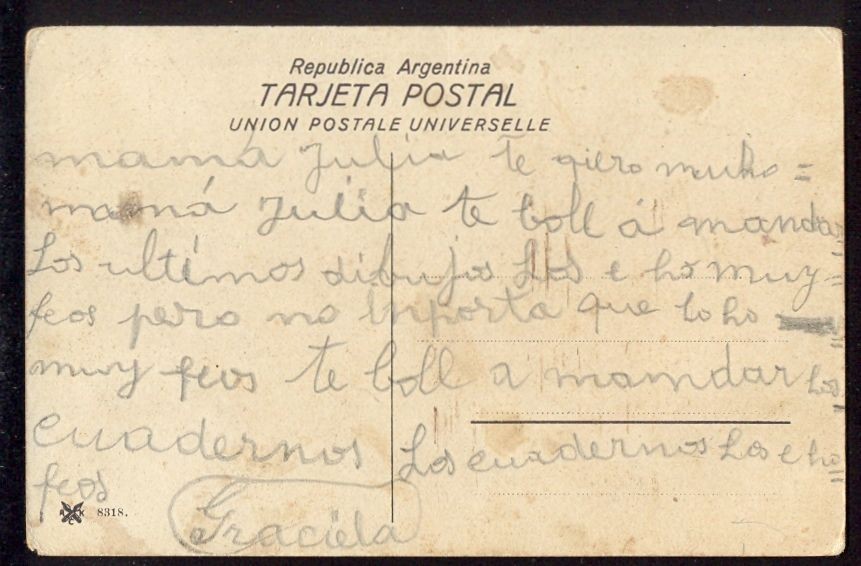 Republica Argentina
TARJETA POSTAL
UNION POSTALE UNIVERSELLE
mamá Júlia te qiero mucho =
mamá Júlia te boll á mandar=
Los ultimos dibujos Los e ho muy=
feos pero no inporta que lo ho
muy feos te boll a mamdar los
cuadernos Los cuadernos Los e ho=
feos
Graciela
8318.